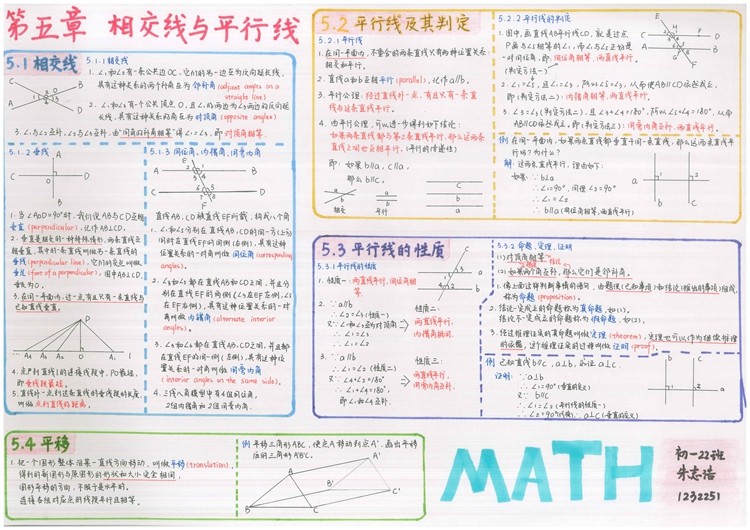 第五章 相交线与平行线
5.1 相交线
5.1.1 相交线
1. ∠1和∠2有一条公共边OC,它们的另一边互为反向延长线,
具有这种关系的两个补角互为 邻补角 (adjacent angles on a
straight line)
2. ∠1和∠3有一个公共顶点O,且∠1的两边为∠3两边的反向延
长线,具有这种关系的角互为 对顶角 (opposite angles)
3. ∠1与∠2互补,∠3与∠2互补,由"同角的补角相等"得∠1=∠3,即 对顶角相等.
5.1.2 垂线
1. 当∠AOD=90°时,我们说AB与CD互相
垂直 (perpendicular),记作AB⊥CD.
2. 垂直是相交的一种特殊情形,两条直线互
相垂直,其中的一条直线叫做另一条直线的
垂线 (perpendicular line),它们的交点叫做
垂足 (foot of a perpendicular),图中AB⊥CD,
垂足为O.
3. 在同一平面内,过一点有且只有一条直线与
已知直线垂直.
4. 点P到直线l的连接线段中,PO最短,
即 垂线段最短.
5. 直线外一点到这条直线的垂线段的长度,
叫做 点到直线的距离.
5.1.3 同位角、内错角、同旁内角
直线AB,CD被直线EF所截,构成八个角
1. ∠1和∠5分别在直线AB,CD的同一方(上方)
同时在直线EF的同侧(右侧),具有这种
位置关系的一对角叫做 同位角 (corresponding
angles).
2. ∠3和∠5都在直线AB和CD之间,并且分
别在直线EF的两侧(∠3在EF左侧,∠5
在EF右侧),具有这种位置关系的一对
角叫做 内错角 (alternate interior
angles).
3. ∠3和∠6都在直线AB、CD之间,并且都
在直线EF的同一侧(左侧),具有这种位
置关系的一对角叫做 同旁内角
(interior angles on the same side).
4. 三线八角模型中有4组同位角,
2组内错角和2组同旁内角.
5.2 平行线及其判定
5.2.1 平行线
1. 在同一平面内,不重合的两条直线只有两种位置关系:
相交和平行.
2. 直线a和b互相平行(parallel),记作a∥b.
3. 平行公理:经过直线外一点,有且只有一条直
线与这条直线平行.
4. 由平行公理,可以进一步得到如下结论:
如果两条直线都与第三条直线平行,那么这两条
直线之间也互相平行.(平行的传递性)
即:如果b∥a, c∥a,
那么b∥c.
相交 平行
5.2.2 平行线的判定
1. 图中,画直线AB平行线CD,就是过点
P画与∠2相等的∠1,而∠1与∠2正好是
一对同位角,即:同位角相等,两直线平行.
(判定方法一)
例 在同一平面内,如果两条直线都垂直于同一条直线,那么这两条直线平
行吗?为什么?
解:这两条直线平行,理由如下:
如果:∵b⊥a
∴∠1=90°,同理∠2=90°
∴∠1=∠2
∴b∥c(同位角相等,两直线平行)
5.3 平行线的性质
5.3.1 平行线的性质
性质一:两直线平行,同位角
相等.
2. ∵a∥b
∴∠2=∠3(性质一)
性质二:
两直线平行,
内错角相等.
3. ∵a∥b
∴∠1=∠2(性质二)
性质三:
两直线平行,
同旁内角互补.
5.3.2 命题、定理、证明
(1)对顶角相等.
(2)如果两个角互补,那么它们是邻补角.
1. 像上面这样判断事情的语句,由题设(已知事项)和结论(推出的事项)组成,
称为命题 (proposition).
2. 结论一定成立的命题称为真命题,如(1).
结论不一定成立的命题称为假命题,如(2).
3. 经过推理证实的真命题叫做定理(theorem),定理也可以作为继续推理
的依据,这个推理证实的过程叫做证明(proof).
例 已知直线b∥c, a⊥b,求证a⊥c.
证明:∵a⊥b
∴∠1=90°(垂直的定义)
又∵b∥c
∴∠1=∠2(平行线的性质一)
∴∠2=90°(代换) ∴a⊥c(垂直的定义)
5.4 平移
1. 把一个图形整体沿某一直线方向移动,叫做平移(translation),
得到的新图形与原图形的形状和大小完全相同.
图形平移的方向,不限于是水平的.
连接各组对应点的线段平行且相等.
例 平移三角形ABC,使点A移动到点A',画出平移
后的三角形A'B'C'.
MATH
初一22班
朱志浩
1232251